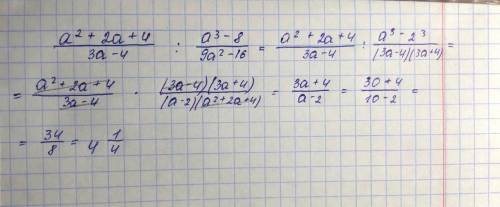 (a² + 2a + 4)/(3a − 4) : (a³ − 8)/(9a² − 16) = (a² + 2a + 4)/(3a − 4) : (a³ − 2³)/((3a−4)(3a+4)) =
= (a² + 2a + 4)/(3a − 4) · ((3a−4)(3a+4))/((a−2)(a²+2a+4)) = (3a+4)/(a−2) = (30+4)/(10−2) =
= 34/8 = 4 1/4